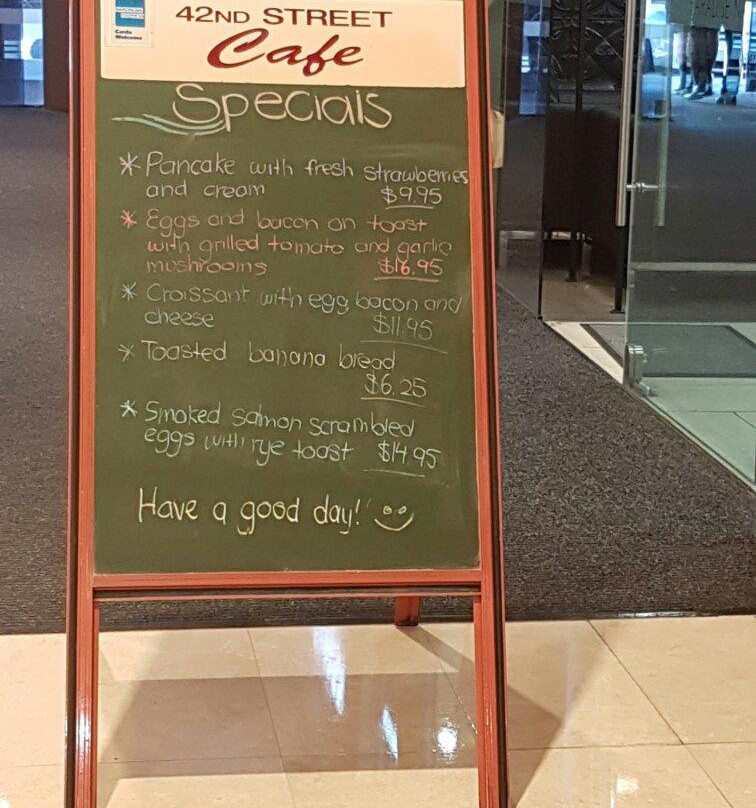 Cards
Welcome
42ND STREET
Cafe
Specials
* Pancake with fresh strawberries
and cream $9.95
* Eggs and bacon on toast
with grilled tomato and garlic
mushrooms $16.95
* Croissant with egg bacon and
cheese $11.95
* Toasted banana bread
$6.25
* Smoked salmon scrambled
eggs with rye toast $14.95
Have a good day!